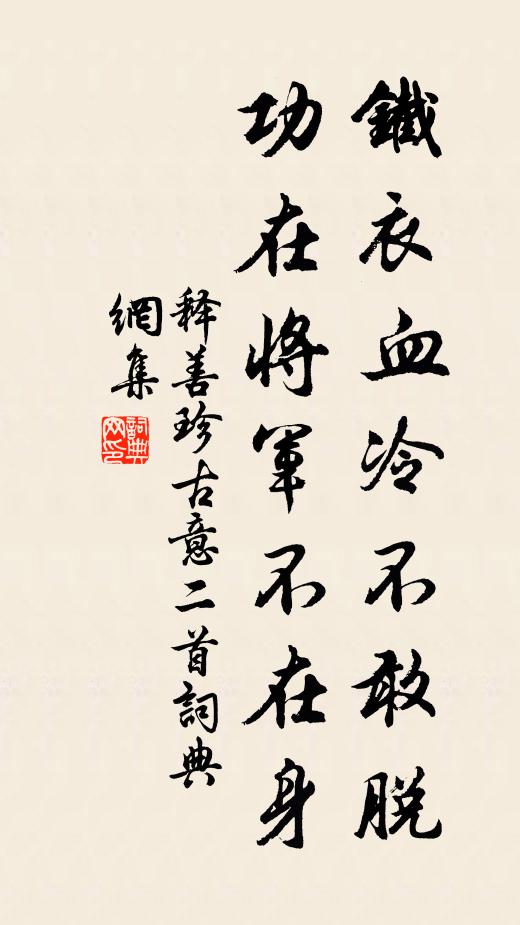 鐵衣血冷不敢脫
功在將軍不在身
释善珍古意二首詞典
網集
詞典网印